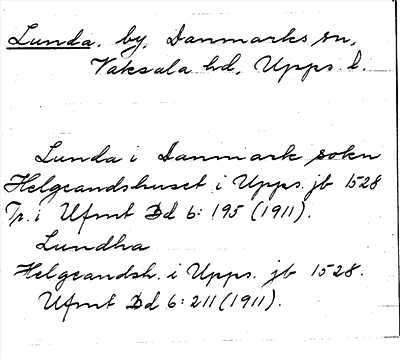 Lunda, by, Danmarks sn,
Vaksala hd, Upps. l.
Lunda i Danmark sokn
Helgeandshuset i Upps. jb 1528
Tr. i Ufmt Bd 6: 195 (1911).
Lundha
Helgeandsh. i Upps. jb 1528.
Ufmt Bd 6: 211 (1911).